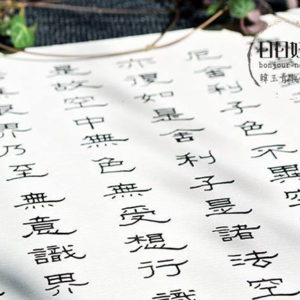 厄舍利子色不異空
亦復如是舍利子是諸法空
是故空中無色無受想行識
界乃至無意識界
bonjour-n
韓玉青